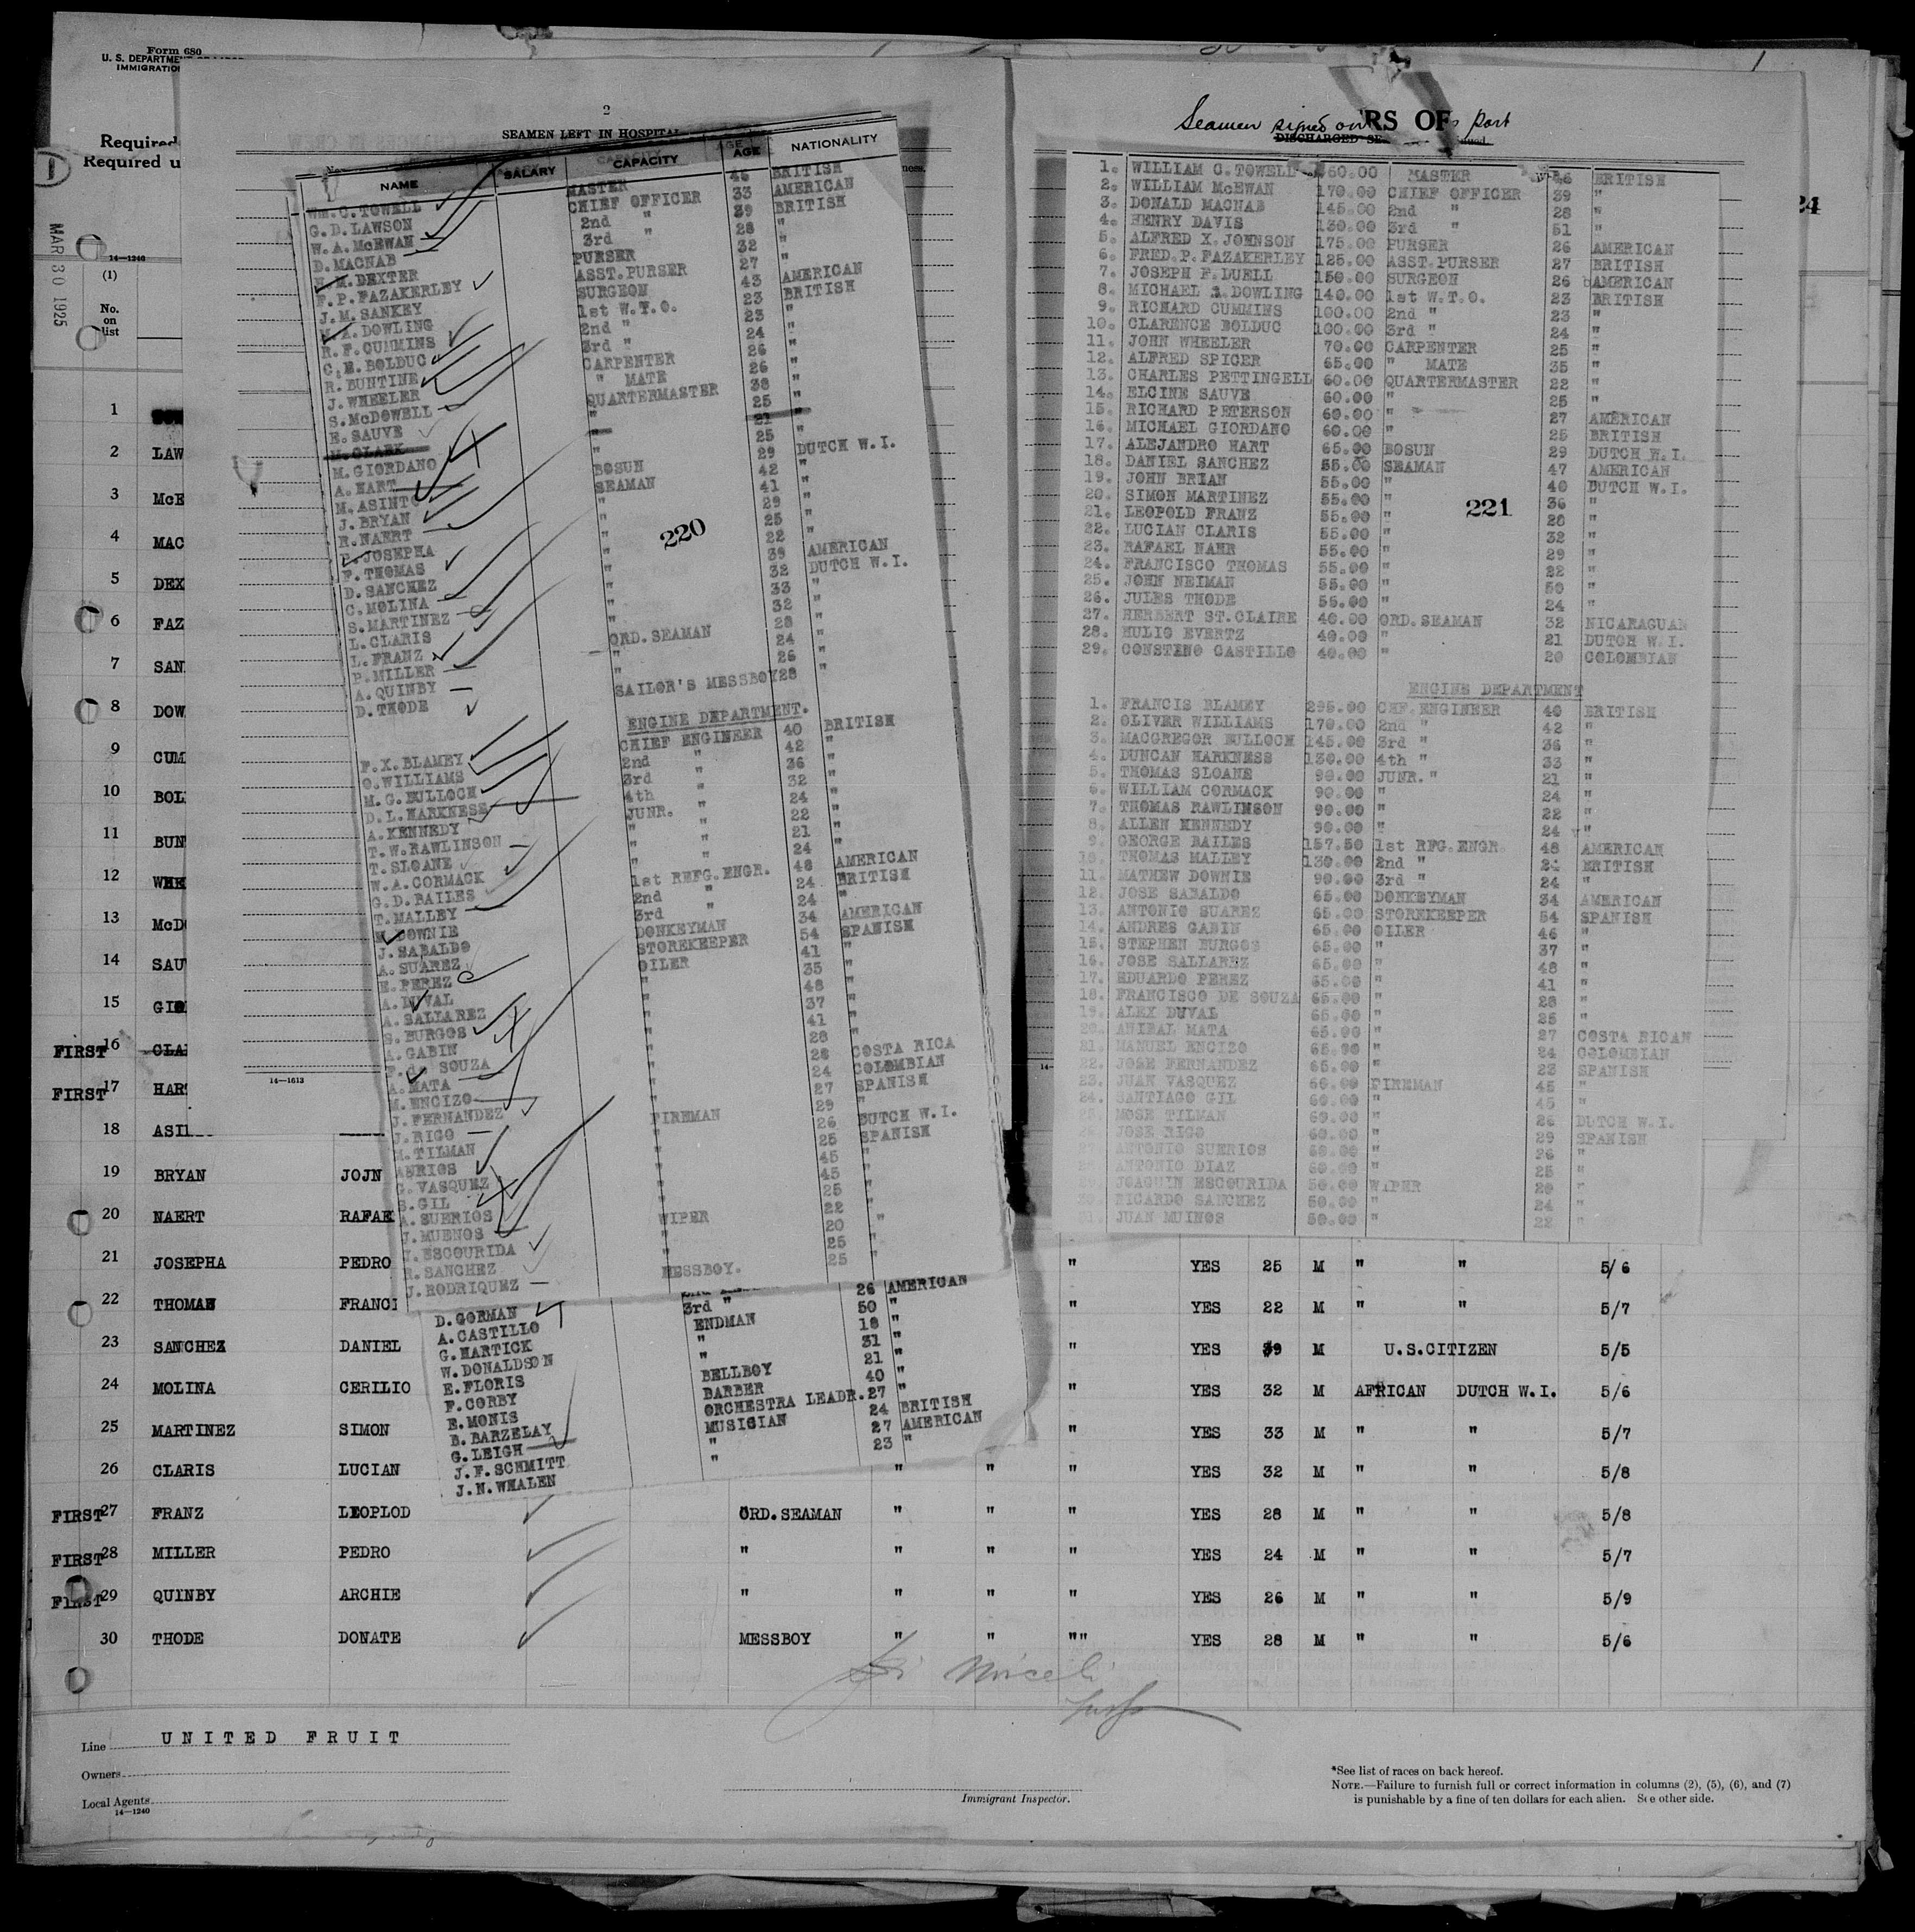 Form 680
U. S. DEPARTME
IMMIGRATION
Required
Required u
MAR 30 1925
14—1240
(1)
No. on list
2
SEAMEN LEFT IN HOSPITAL
NAME SALARY CAPACITY AGE NATIONALITY
WM. C. TOWELL MASTER 46 BRITISH
G. D. LAWSON CHIEF OFFICER 33 AMERICAN
W. A. McEWAN 2nd " 39 BRITISH
D. MACNAB 3rd " 28 "
H. M. DEXTER PURSER 32 "
F. P. FAZAKERLEY ASST. PURSER 27 "
J. M. SANKEY SURGEON 43 AMERICAN
M. A. DOWLING 1st W.T.O. 23 BRITISH
R. F. CUMMINS 2nd " 23 "
C. E. BOLDUC 3rd " 24 "
R. BUNTINE CARPENTER 26 "
J. WHEELER " MATE 26 "
S. McDOWELL QUARTERMASTER 38 "
E. SAUVE " 25 "
H. CLARK " 21 "
M. GIORDANO " 25 "
A. HART BOSUN 29 DUTCH W.I.
M. ASINTO SEAMAN 42 "
J. BRYAN " 41 "
R. NAERT " 29 "
P. JOSEPHA " 25 "
F. THOMAS " 22 "
D. SANCHEZ " 39 AMERICAN
C. MOLINA " 32 DUTCH W.I.
S. MARTINEZ " 33 "
L. CLARIS " 32 "
L. FRANZ ORD. SEAMAN 28 "
P. MILLER " 24 "
A. QUINBY " 26 "
D. THODE SAILOR'S MESSBOY 28 "
220
ENGINE DEPARTMENT.
F. X. BLAMEY CHIEF ENGINEER 40 BRITISH
O. WILLIAMS 2nd " 42 "
M. G. BULLOCH 3rd " 36 "
D. L. HARKNESS 4th " 32 "
A. KENNEDY JUNR. " 24 "
T. W. RAWLINSON " " 22 "
T. SLOANE " " 21 "
W. A. CORMACK " " 24 "
G. D. BAILES 1st REFG. ENGR. 48 AMERICAN
T. MALLEY 2nd " 24 BRITISH
M. DOWNIE 3rd " 24 "
J. SABALDO DONKEYMAN 34 AMERICAN
A. SUAREZ STOREKEEPER 54 SPANISH
E. PEREZ OILER 41 "
A. DUVAL " 35 "
A. SALLAREZ " 48 "
S. BURGOS " 37 "
A. GABIN " 41 "
F. de SOUZA " 28 "
A. MATA " 28 COSTA RICA
M. ENCIZO " 24 COLOMBIAN
J. FERNANDEZ " 27 SPANISH
J. RIGO FIREMAN 29 "
M. TILMAN " 26 DUTCH W.I.
A. RIOS " 25 SPANISH
G. VASQUEZ " 45 "
S. GIL " 45 "
A. SUERIOS " 25 "
J. MUENOS WIPER 22 "
J. ESCOURIDA " 20 "
R. SANCHEZ " 25 "
J. RODRIQUEZ MESSBOY. 25 "
26 AMERICAN
D. GORMAN 3rd " 50 "
A. CASTILLO ENDMAN 18 "
G. HARTICK " 31 "
W. DONALDSON " 21 "
E. FLORIS BELLBOY 40 "
F. CORBY BARBER
E. MONIS ORCHESTRA LEADR. 27 "
B. BARZELAY MUSICIAN 24 BRITISH
G. LEIGH " 27 AMERICAN
J. F. SCHMITT " 23 "
J. N. WHALEN
Seamen signed on RS OF port
DISCHARGED SE
24
1. WILLIAM C. TOWELL 360.00 MASTER 46 BRITISH
2. WILLIAM McEWAN 170.00 CHIEF OFFICER 39 "
3. DONALD MACNAB 145.00 2nd " 28 "
4. HENRY DAVIS 130.00 3rd " 51 "
5. ALFRED X. JOHNSON 175.00 PURSER 26 AMERICAN
6. FRED. P. FAZAKERLEY 125.00 ASST. PURSER 27 BRITISH
7. JOSEPH F. LUELL 150.00 SURGEON 26 AMERICAN
8. MICHAEL A. DOWLING 140.00 1st W.T.O. 23 BRITISH
9. RICHARD CUMMINS 100.00 2nd " 23 "
10. CLARENCE BOLDUC 100.00 3rd " 24 "
11. JOHN WHEELER 70.00 CARPENTER 25 "
12. ALFRED SPICER 65.00 " MATE 35 "
13. CHARLES PETTINGELL 60.00 QUARTERMASTER 22 "
14. ELCINE SAUVE 60.00 " 25 "
15. RICHARD PETERSON 60.00 " 27 AMERICAN
16. MICHAEL GIORDANO 60.00 " 25 BRITISH
17. ALEJANDRO HART 65.00 BOSUN 29 DUTCH W.I.
18. DANIEL SANCHEZ 55.00 SEAMAN 47 AMERICAN
19. JOHN BRIAN 55.00 " 40 DUTCH W.I.
20. SIMON MARTINEZ 55.00 " 36 "
21. LEOPOLD FRANZ 55.00 " 28 "
22. LUCIAN CLARIS 55.00 " 32 "
23. RAFAEL NAHR 55.00 " 29 "
24. FRANCISCO THOMAS 55.00 " 22 "
25. JOHN NEIMAN 55.00 " 50 "
26. JULES THODE 55.00 " 24 "
27. HERBERT ST. CLAIRE 40.00 ORD. SEAMAN 32 NICARAGUAN
28. HULIO EVERTZ 40.00 " 21 DUTCH W.I.
29. CONSTINO CASTILLO 40.00 " 20 COLOMBIAN
221
ENGINE DEPARTMENT
1. FRANCIS BLAMEY 295.00 CHF. ENGINEER 40 BRITISH
2. OLIVER WILLIAMS 170.00 2nd " 42 "
3. MACGREGOR BULLOCH 145.00 3rd " 36 "
4. DUNCAN HARKNESS 130.00 4th " 33 "
5. THOMAS SLOANE 90.00 JUNR. " 21 "
6. WILLIAM CORMACK 90.00 " 24 "
7. THOMAS RAWLINSON 90.00 " 22 "
8. ALLEN KENNEDY 90.00 " 24 "
9. GEORGE BAILES 157.50 1st RFG. ENGR. 48 AMERICAN
10. THOMAS MALLEY 130.00 2nd " 24 BRITISH
11. MATHEW DOWNIE 90.00 3rd " 24 "
12. JOSE SABALDO 65.00 DONKEYMAN 34 AMERICAN
13. ANTONIO SUAREZ 65.00 STOREKEEPER 54 SPANISH
14. ANDRES GABIN 65.00 OILER 46 "
15. STEPHEN BURGOS 65.00 " 37 "
16. JOSE SALLAREZ 65.00 " 48 "
17. EDUARDO PEREZ 65.00 " 41 "
18. FRANCISCO DE SOUZA 65.00 " 28 "
19. ALEX DUVAL 65.00 " 35 "
20. ANIBAL MATA 65.00 " 27 COSTA RICAN
21. MANUEL ENCIZO 65.00 " 24 COLOMBIAN
22. JOSE FERNANDEZ 65.00 " 23 SPANISH
23. JUAN VASQUEZ 60.00 FIREMAN 45 "
24. SANTIAGO GIL 60.00 " 45 "
MOSE TILMAN 60.00 " 26 DUTCH W.I.
JOSE RIGO 60.00 " 29 SPANISH
ANTONIO SUERIOS 60.00 " 26 "
ANTONIO DIAZ 60.00 " 25 "
JOAQUIN ESCOURIDA 50.00 WIPER 20 "
RICARDO SANCHEZ 50.00 " 24 "
JUAN MUINOS 50.00 " 22 "
1
2 LAW
3 McE
4 MAC
5 DEX
6 FAZ
7 SAN
8 DOW
9 CUM
10 BOL
11 BUN
12 WHE
13 McD
14 SAU
15 GIO
FIRST 16 CLA
14—1613
FIRST 17 HAR
18 ASI
19 BRYAN JOJN
20 NAERT RAFAE
21 JOSEPHA PEDRO " YES 25 M " " 5/6
22 THOMAS FRANCI " YES 22 M " " 5/7
23 SANCHEZ DANIEL " YES 39 M U.S.CITIZEN 5/5
24 MOLINA CERILIO " YES 32 M AFRICAN DUTCH W.I. 5/6
25 MARTINEZ SIMON " YES 33 M " " 5/7
26 CLARIS LUCIAN " " " YES 32 M " " 5/8
FIRST 27 FRANZ LEOPLOD ORD. SEAMAN " " " YES 28 M " " 5/8
FIRST 28 MILLER PEDRO " " " " YES 24 M " " 5/7
FIRST 29 QUINBY ARCHIE " " " " YES 26 M " " 5/9
30 THODE DONATE MESSBOY " " "" YES 28 M " " 5/6
Line UNITED FRUIT
Owners
Local Agents
14—1240
Immigrant Inspector.
*See list of races on back hereof.
NOTE.—Failure to furnish full or correct information in columns (2), (5), (6), and (7)
is punishable by a fine of ten dollars for each alien. See other side.